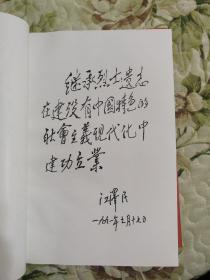 继承烈士遗志
在建设有中国特色的
社会主义现代化中
建功立業
江泽民
一九九一年三月十七日